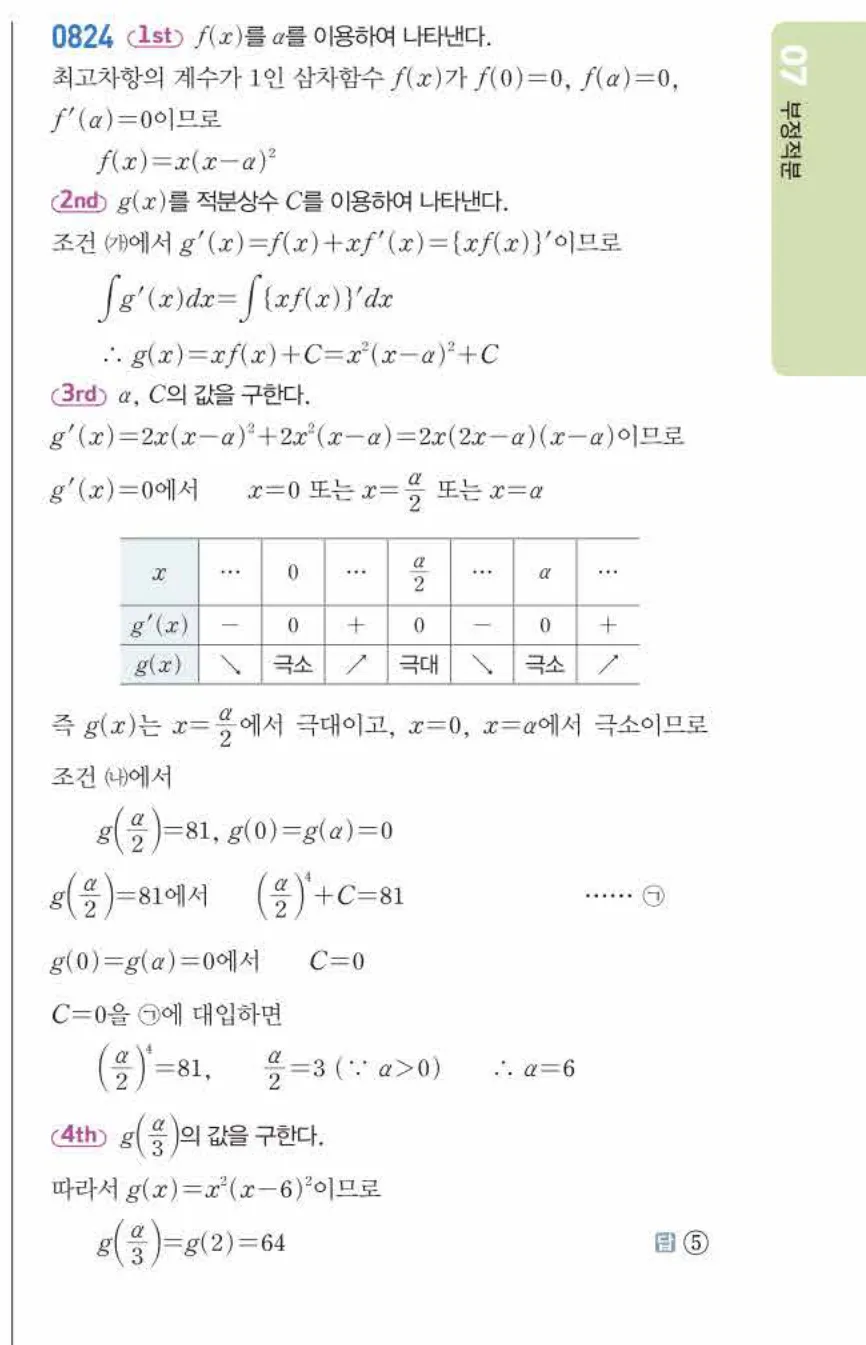 0824 1st f(x)를 α를 이용하여 나타낸다.
최고차항의 계수가 1인 삼차함수 f(x)가 f(0)=0, f(α)=0,
f′(α)=0이므로
f(x)=x(x-α)²
2nd g(x)를 적분상수 C를 이용하여 나타낸다.
조건 ㈎에서 g′(x)=f(x)+xf′(x)={xf(x)}′이므로
∫g′(x)dx=∫{xf(x)}′dx
∴ g(x)=xf(x)+C=x²(x-α)²+C
3rd α, C의 값을 구한다.
g′(x)=2x(x-α)²+2x²(x-α)=2x(2x-α)(x-α)이므로
g′(x)=0에서 x=0 또는 x=α/2 또는 x=α
x … 0 … α/2 … α …
g′(x) - 0 + 0 - 0 +
g(x) ↘ 극소 ↗ 극대 ↘ 극소 ↗
즉 g(x)는 x=α/2에서 극대이고, x=0, x=α에서 극소이므로
조건 ㈏에서
g(α/2)=81, g(0)=g(α)=0
g(α/2)=81에서 (α/2)⁴+C=81 …… ㉠
g(0)=g(α)=0에서 C=0
C=0을 ㉠에 대입하면
(α/2)⁴=81, α/2=3 (∵ α>0) ∴ α=6
4th g(α/3)의 값을 구한다.
따라서 g(x)=x²(x-6)²이므로
g(α/3)=g(2)=64 답 ⑤
07 부정적분